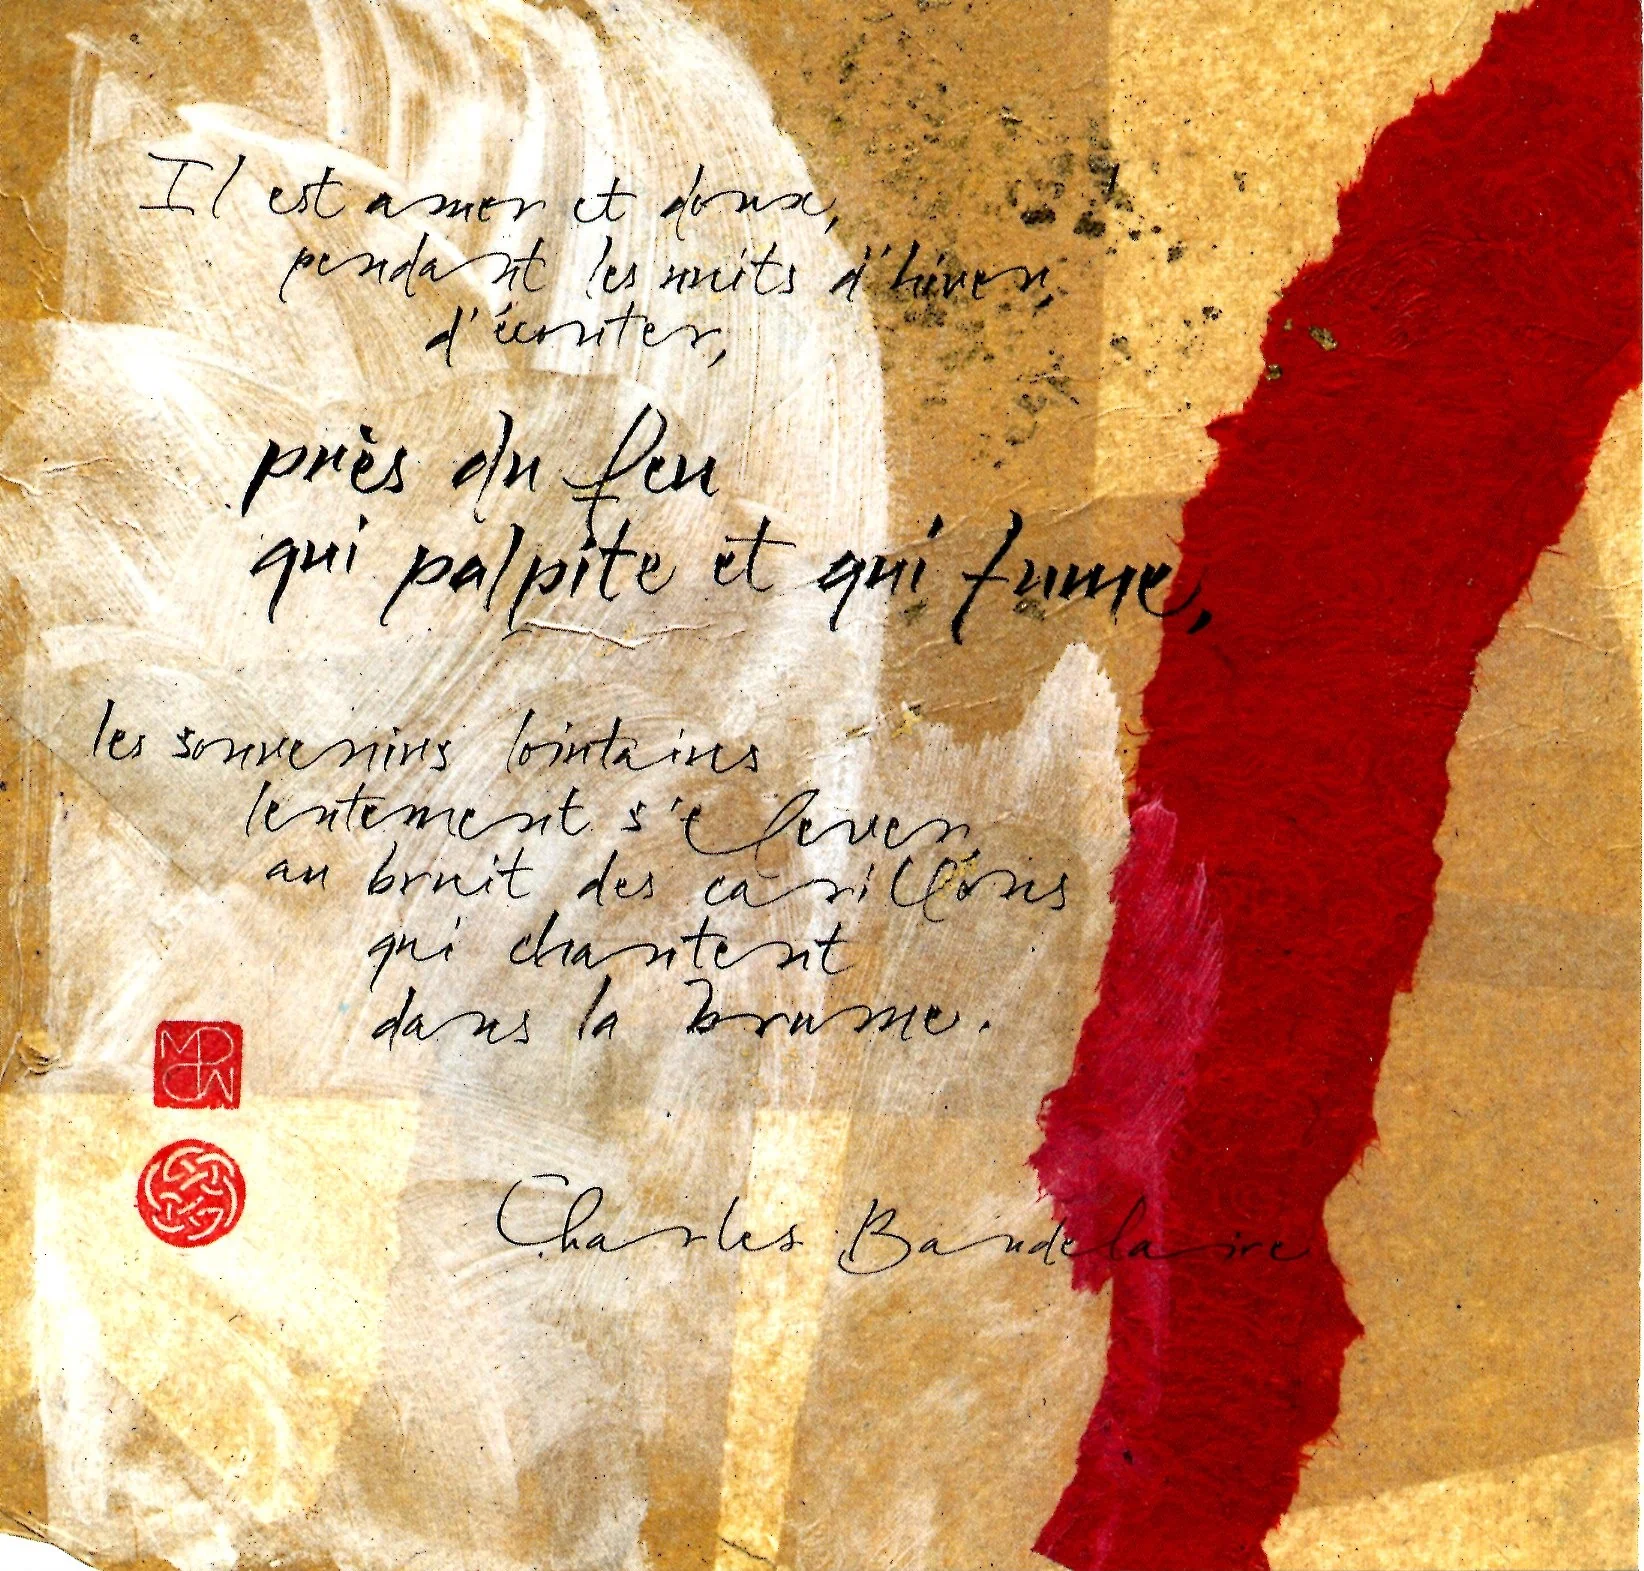 Il est amer et doux,
pendant les nuits d'hiver,
d'écouter,
près du feu
qui palpite et qui fume,
les souvenirs lointains
lentement s'élever
au bruit des carillons
qui chantent
dans la brume.
Charles Baudelaire